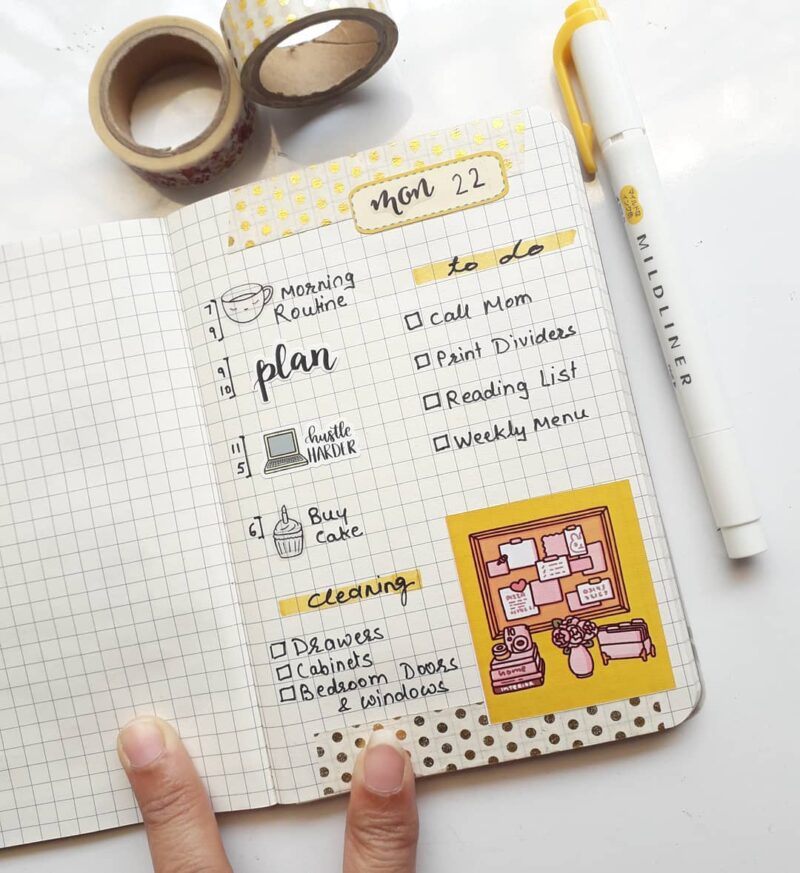 mon 22
to do
7
9
Morning
Routine
9
10
plan
11
5
hustle
HARDER
6
Buy
Cake
☐ Call Mom
☐ Print Dividers
☐ Reading List
☐ Weekly Menu
cleaning
☐ Drawers
☐ Cabinets
☐ Bedroom Doors
& windows
PIZZA
home
INTERIOR
MILDLINER